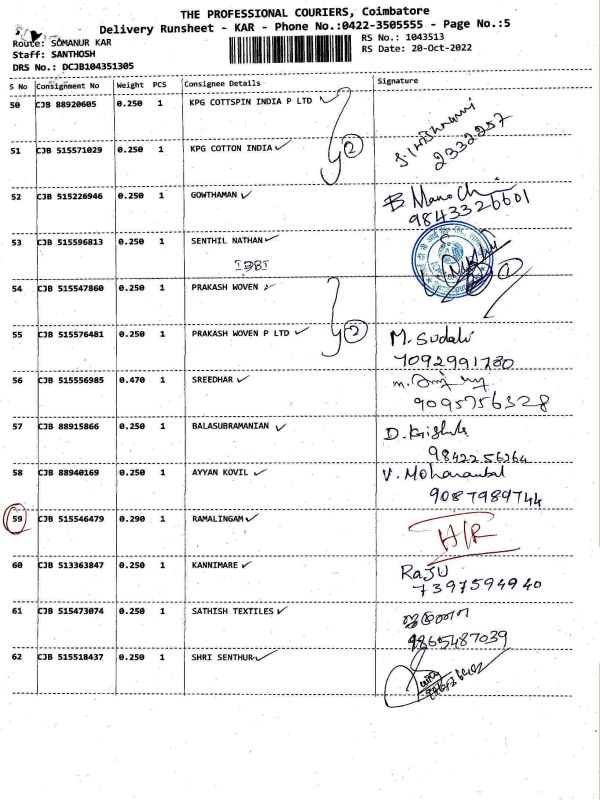 THE PROFESSIONAL COURIERS, Coimbatore
Delivery Runsheet - KAR - Phone No.:0422-3505555 - Page No.:5
Route: SOMANUR KAR
RS No.: 1043513
Staff: SANTHOSH
RS Date: 20-Oct-2022
DRS No.: DCJB104351305
S No Consignment No Weight PCS Consignee Details Signature
50 CJB 88920605 0.250 1 KPG COTTSPIN INDIA P LTD ✓
2332257
51 CJB 515571029 0.250 1 KPG COTTON INDIA ✓ 2
52 CJB 515226946 0.250 1 GOWTHAMAN ✓ B Mano
9843326601
53 CJB 515596813 0.250 1 SENTHIL NATHAN ✓
IDBI
54 CJB 515547860 0.250 1 PRAKASH WOVEN ✓
55 CJB 515576481 0.250 1 PRAKASH WOVEN P LTD ✓ 2 M. Sudali
7092991780
56 CJB 515556985 0.470 1 SREEDHAR ✓
9095756328
57 CJB 88915866 0.250 1 BALASUBRAMANIAN ✓ D. Krishna
9842256264
58 CJB 88940169 0.250 1 AYYAN KOVIL ✓ V. Mohanambal
9087989744
59 CJB 515546479 0.290 1 RAMALINGAM ✓ H/R
60 CJB 513363847 0.250 1 KANNIMARE ✓ RaJU
7397594940
61 CJB 515473074 0.250 1 SATHISH TEXTILES ✓
9865487039
62 CJB 515518437 0.250 1 SHRI SENTHUR ✓